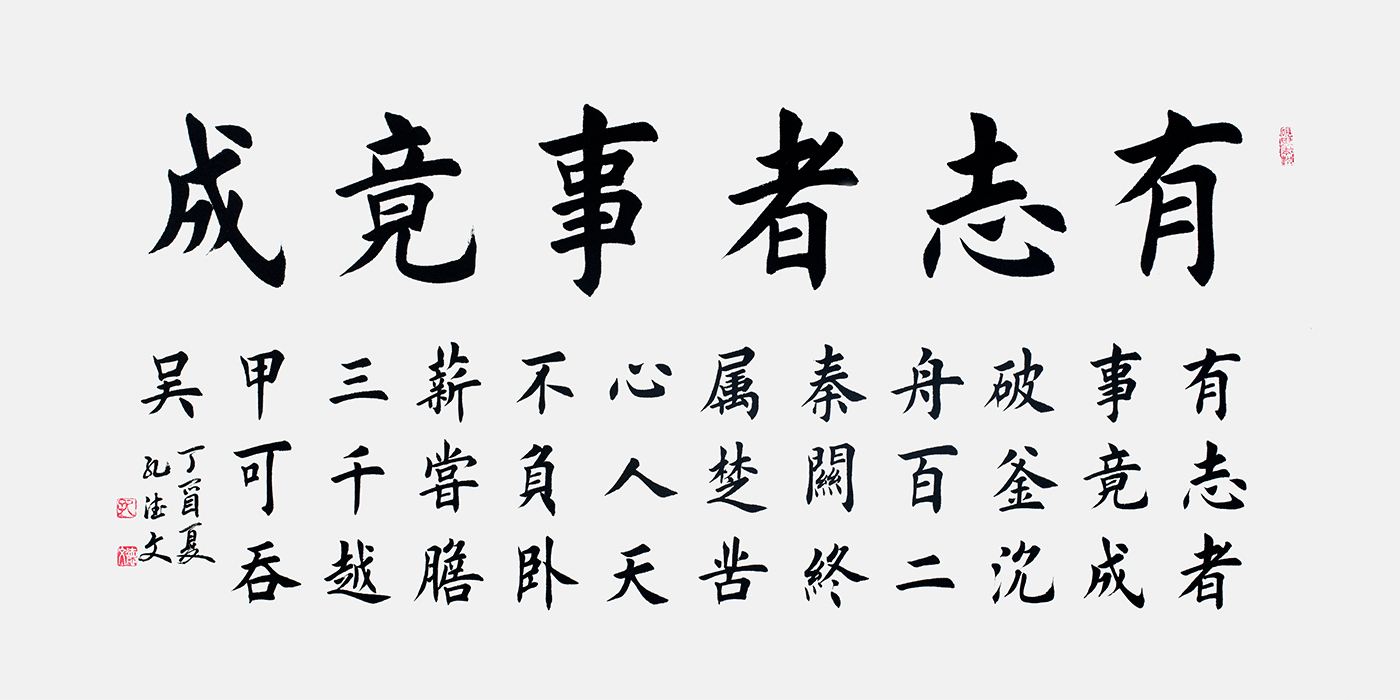 有志者事竟成
有志者
事竟成
破釜沉
舟百二
秦關終
属楚苦
心人天
不負卧
薪嘗膽
三千越
甲可吞
吴
丁酉夏
孔德文